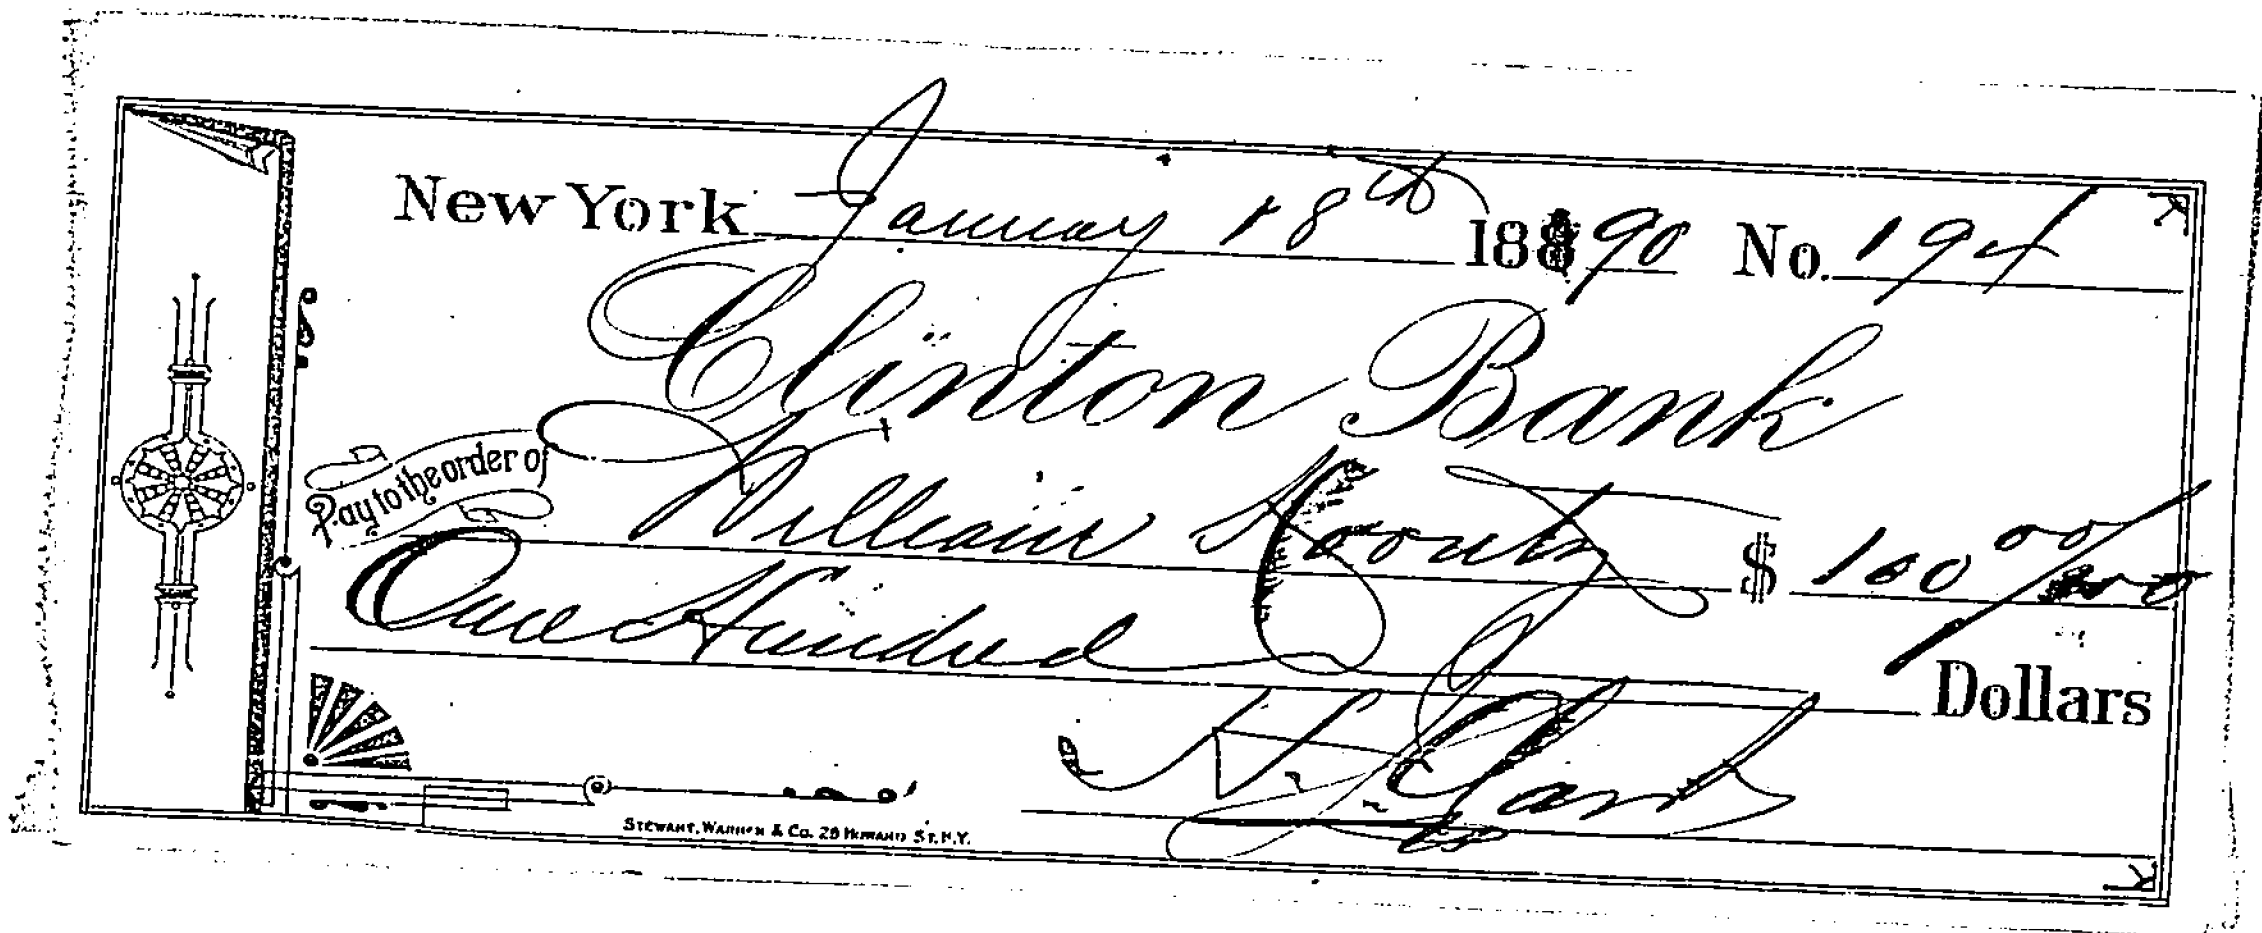 New York January 18th 1890 No. 194
Clinton Bank
Pay to the order of William
$ 100 00/100
One Hundred Dollars
STEWART, WARREN & CO. 28 HOWARD ST. N.Y.